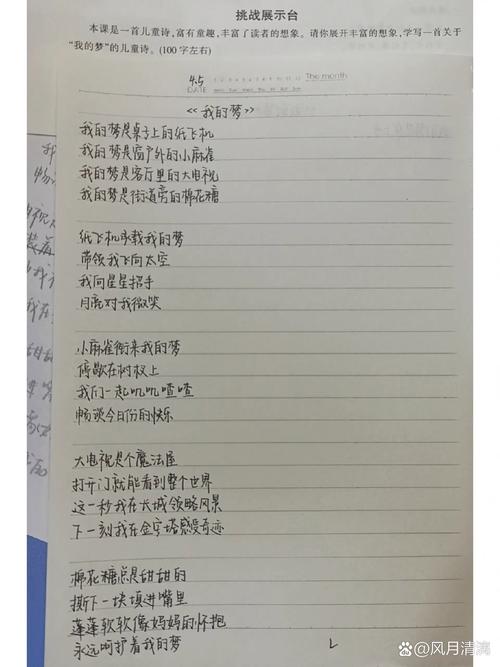 挑战展示台
本课是一首儿童诗,富有童趣,丰富了读者的想象。请你展开丰富的想象,学写一首关于
“我的梦”的儿童诗。(100字左右)
4.5
DATE
The month
《我的梦》
我的梦是桌子上的纸飞机
我的梦是窗户外的小麻雀
我的梦是客厅里的大电视
我的梦是街道旁的棉花糖
纸飞机承载我的梦
带领我飞向太空
我向星星招手
月亮对我微笑
小麻雀衔来我的梦
停歇在树杈上
我们一起叽叽喳喳
畅谈今日份的快乐
大电视是个魔法屋
打开门就能看到整个世界
这一秒我在长城领略风景
下一刻我在金字塔感受奇迹
棉花糖总是甜甜的
撕下一块填进嘴里
蓬蓬软软像妈妈的怀抱
永远呵护着我的梦
@风月清漓